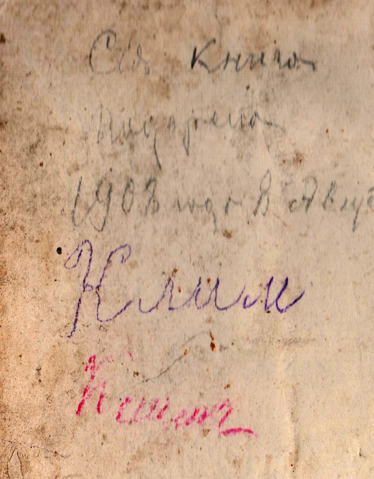 Сія книга
подарена
1908 года 8 Авгус
Клим
Клим